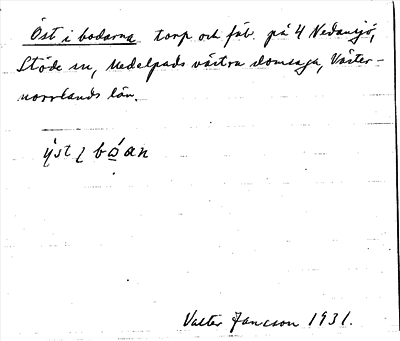 Öst i bodarna torp och fäb. på 4 Nedansjö,
Stöde sn, Medelpads västra domsaga, Väster-
norrlands län.
Valter Jansson 1931.